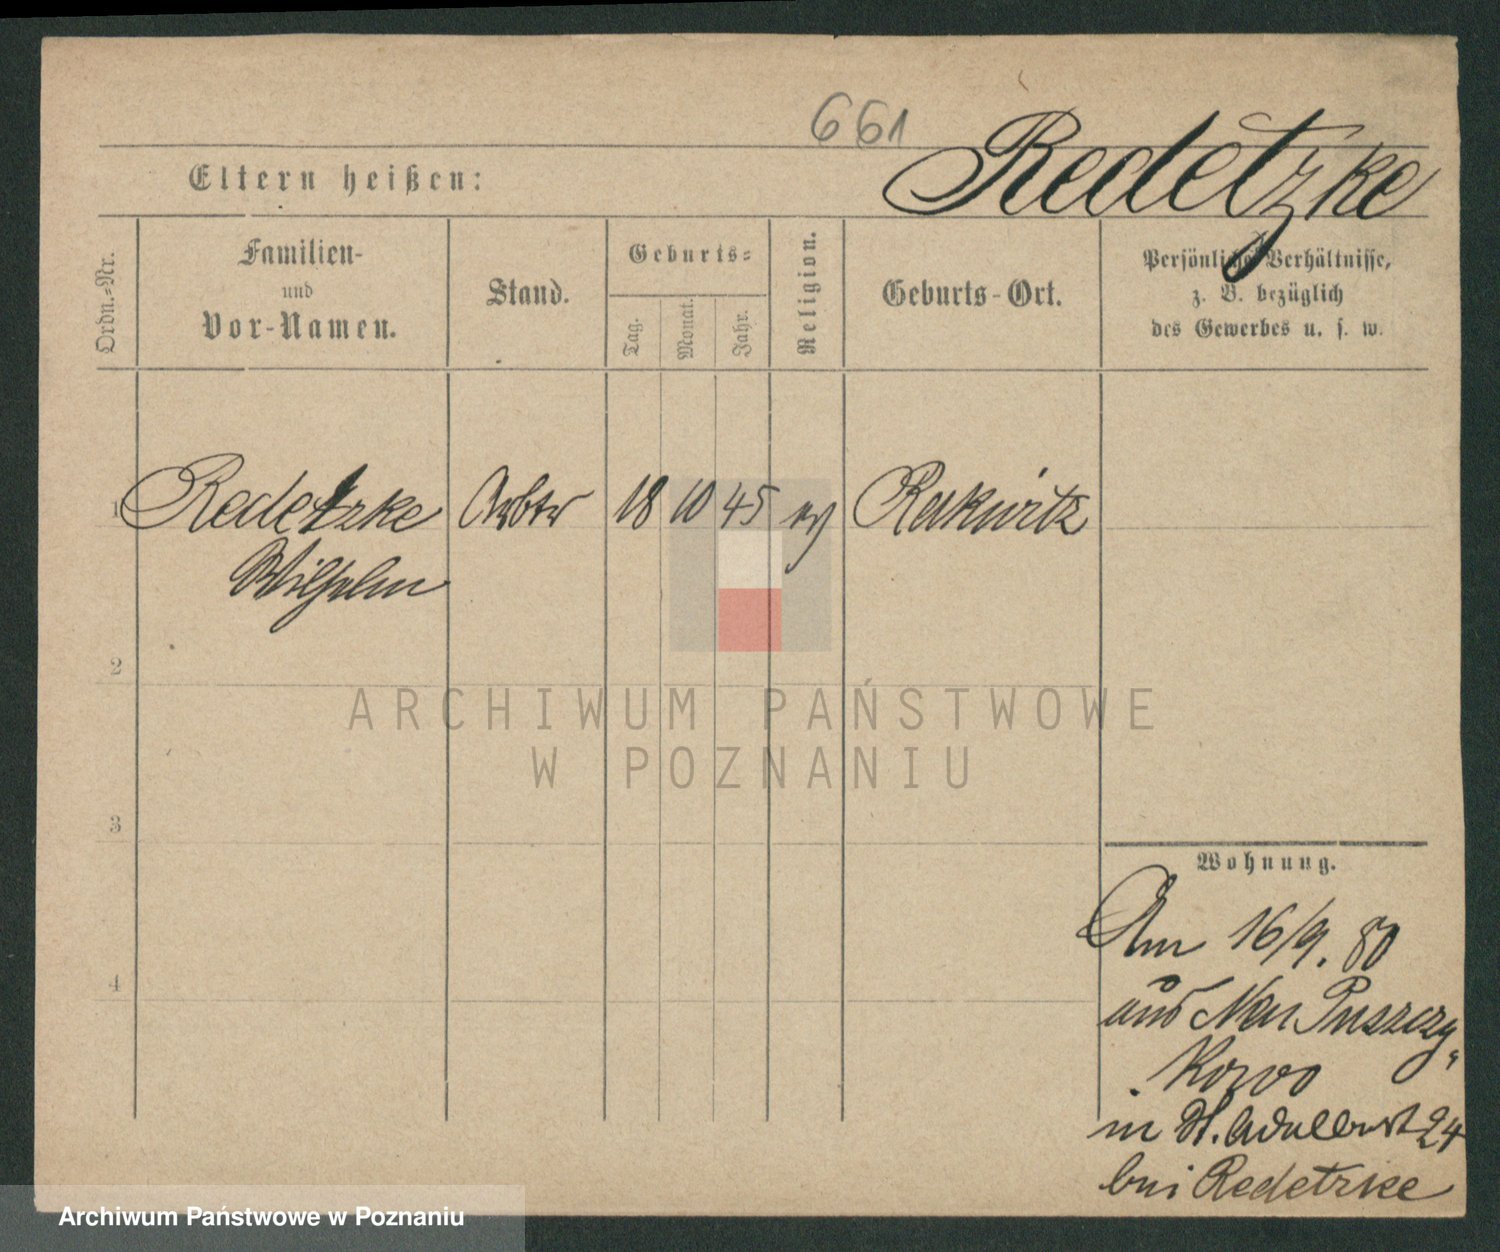 661
Redetzke
Eltern heißen:
Ordn.-Nr.
Familien-
und
Vor-Namen.
Stand.
Geburts-
Tag.
Monat.
Jahr.
Religion.
Geburts-Ort.
Persönliche Verhältnisse,
z. B. bezüglich
des Gewerbes u. s. w.
1 Redetzke Arbtr 18 10 45 ev Rakwitz
Wilhelm
2
ARCHIWUM PAŃSTWOWE
W POZNANIU
3
Wohnung.
Am 16/9. 80
aus Neu Puszczy-
4
kowo
in St. Adalbert 24
bei Redetzke
Archiwum Państwowe w Poznaniu